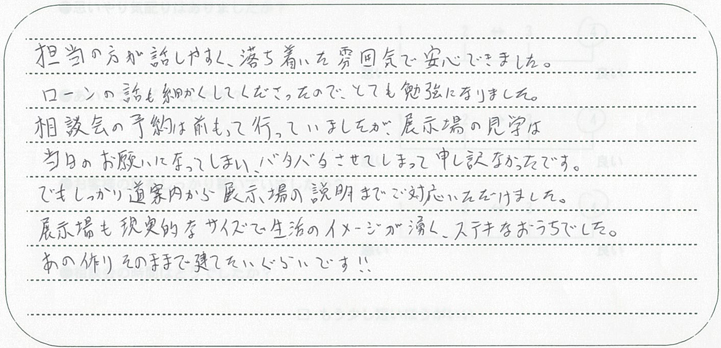 担当の方が話しやすく、落ち着いた雰囲気で安心できました。
ローンの話も細かくしてくださったので、とても勉強になりました。
相談会の予約は前もって行っていましたが、展示場の見学は
当日のお願いになってしまい、バタバタさせてしまって申し訳なかったです。
でもしっかり道案内から展示場の説明までご対応いただけました。
展示場も現実的なサイズで生活のイメージが湧く、ステキなおうちでした。
あの作りそのままで建てたいぐらいです!!